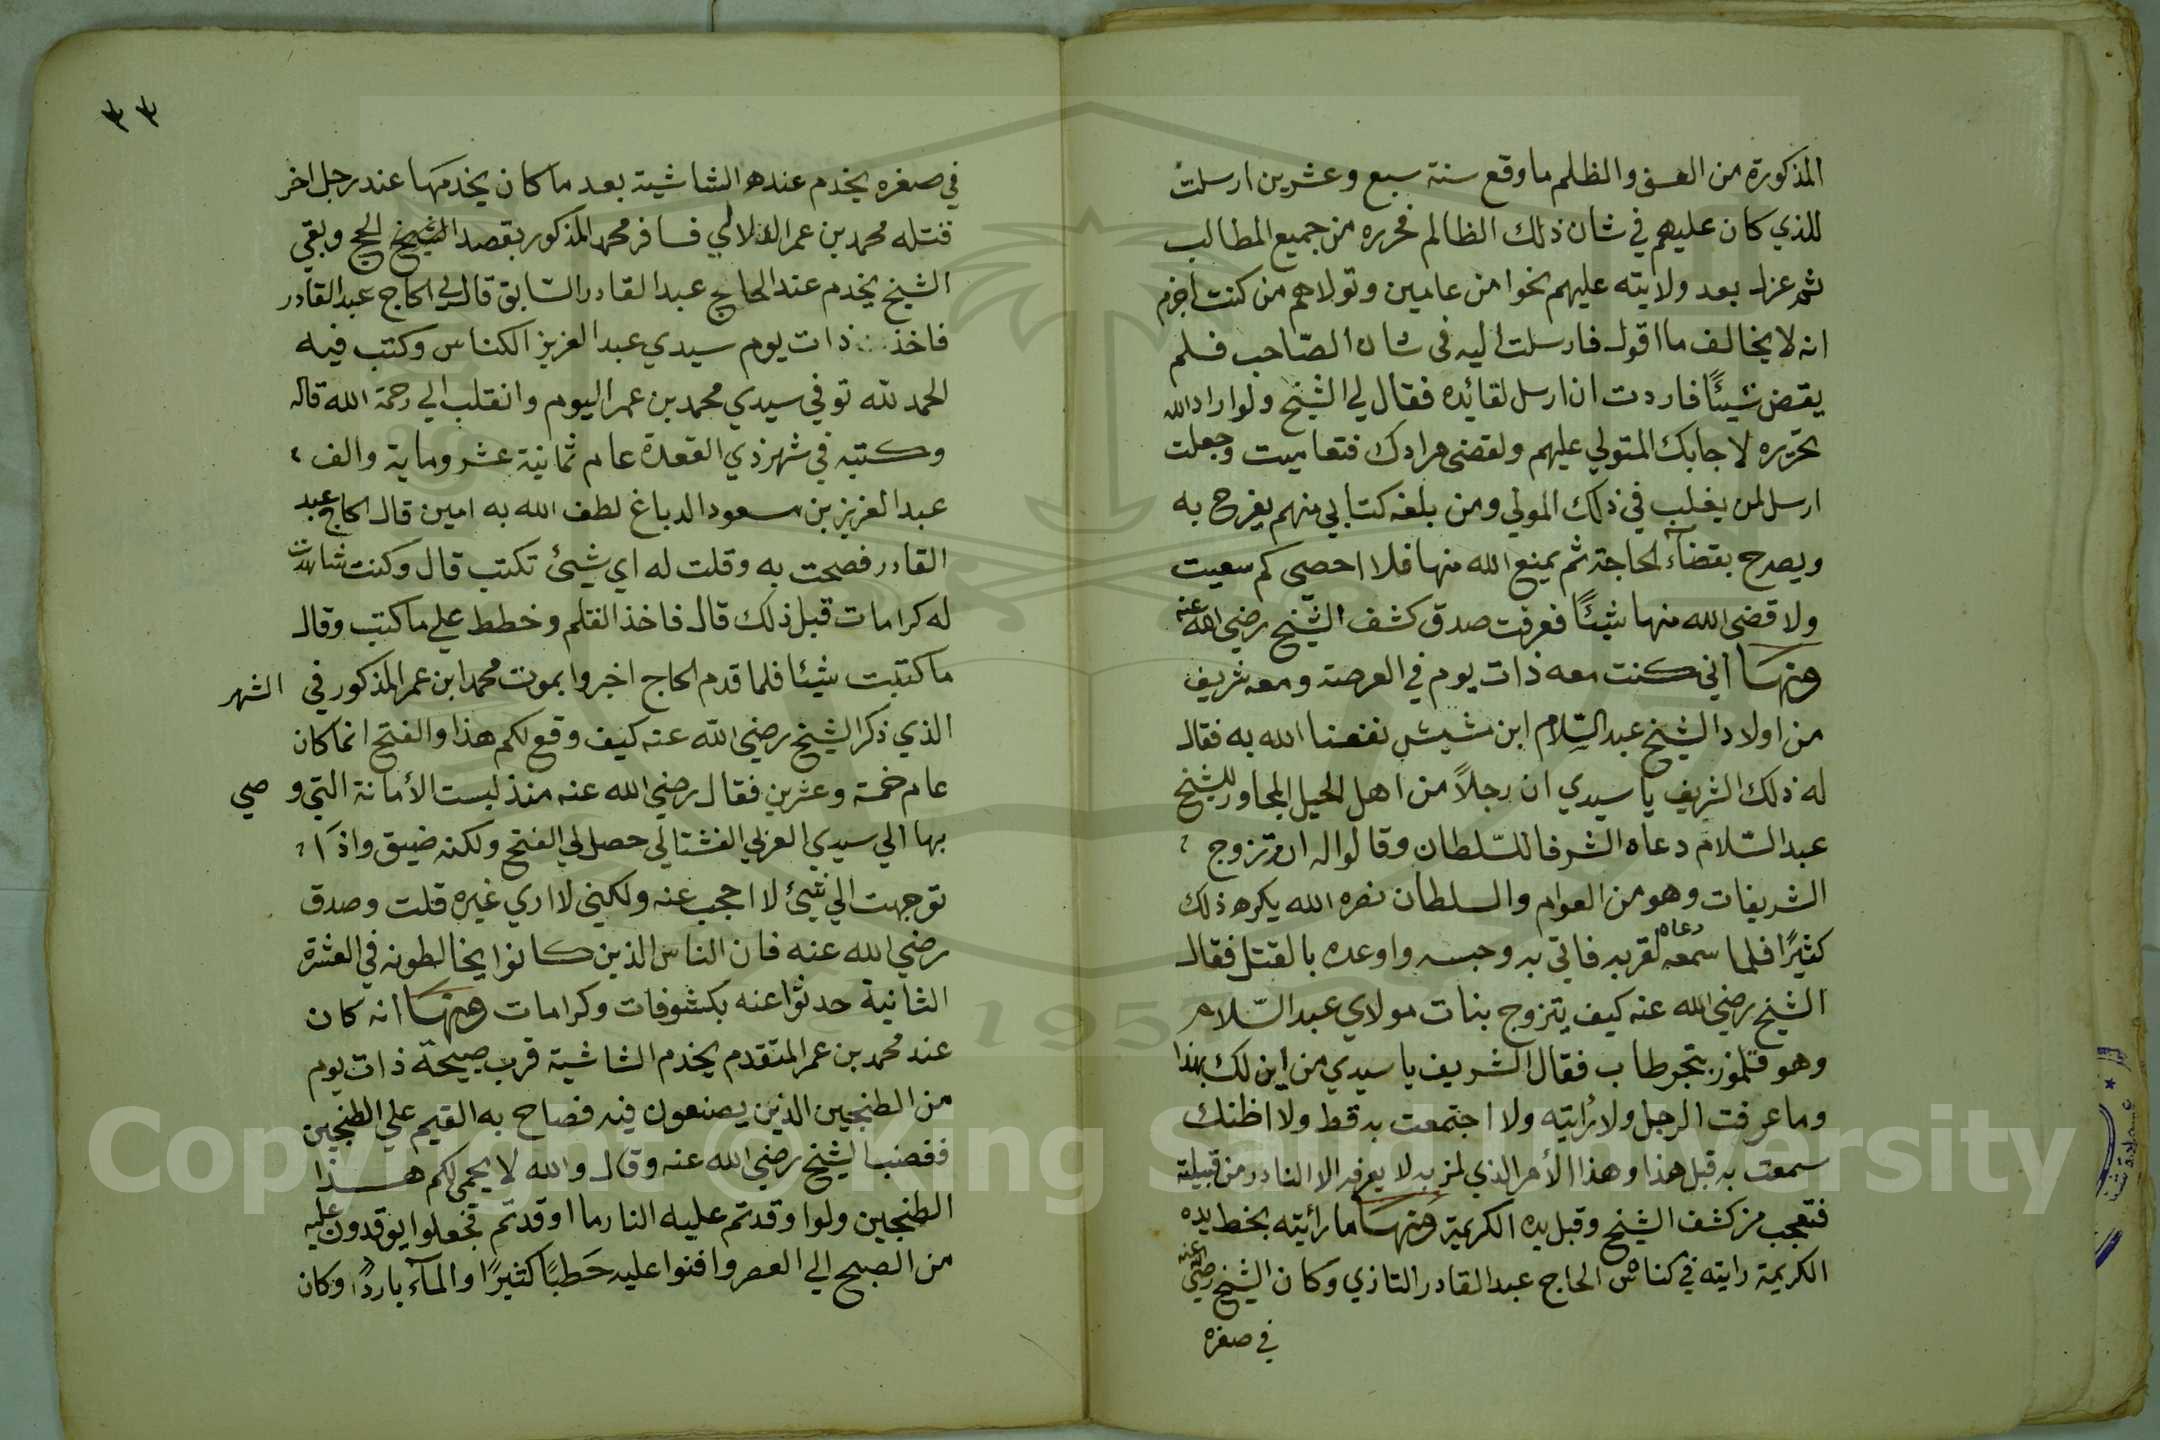 المذكورة من العسف والظلم ما وقع سنة سبع وعشرين ارسلت
للذي كان عليهم في شان ذلك الظالم فحرره من جميع المطالب
ثم عزل بعد ولايته عليهم نحوا من عامين وتولاهم من كنت اجزم
انه لا يخالف ما اقول فارسلت اليه في شان الصّاحب فلم
يقض شيئًا فاردت ان ارسل لقائده فقال لي الشيخ ولو اراد الله
تحريره لاجابك المتولي عليهم ولقضى مرادك فتعاميت وجعلت
ارسل لمن يغلب في ذلك المولي ومن بلغه كتابي منهم يفرح به
ويصرح بقضآء الحاجة ثم يمنع الله منها فلا احصي كم سعيت
ولا قضى الله منها شيئًا فعرفت صدق كشف الشيخ رضي الله عنه
ومنها اني كنت معه ذات يوم في العرصة ومعه شريف
من اولاد الشيخ عبد السّلام ابن مشيش نفعنا الله به فقال
له ذلك الشريف يا سيدي ان رجلاً من اهل الجبل المجاور للشيخ
عبد السّلام دعاه الشرفا للسّلطان وقالوا له ان تزوج
الشريفات وهو من العوام والسلطان نصره الله يكره ذلك
كثيرًا فلما سمعه دعاه لقربه فاتي به وحبسه واوعده بالقتل فقال
الشيخ رضي الله عنه كيف يتزوج بنات مولاي عبد السّلام
وهو قلموز بتجرطاب فقال الشريف يا سيدي من اين لك بهذا
وما عرفت الرجل ولا رأيته ولا اجتمعت به قط ولا اظنك
سمعت به قبل هذا وهذا الأمر الذي لمز به لا يعرفه الا النادر من قبيلة
فتعجب من كشف الشيخ وقبل يده الكريمة ومنها ما رائيته بخط يده
الكريمة رايته في كناش الحاج عبد القادر التازي وكان الشيخ رضي الله عنه
في صغره
٣٣
في صغره يخدم عنده الشاشية بعد ما كان يخدمها عند رجل اخر
قتله محمد بن عمر الدلالي فسافر محمد المذكور بقصد الشيخ الحج وبقي
الشيخ يخدم عند الحاج عبد القادر السّابق قال لي الحاج عبد القادر
فاخذ ذات يوم سيدي عبد العزيز الكناس وكتب فيه
الحمد لله توفي سيدي محمد بن عمر اليوم وانقلب الي رحمة الله قاله
وكتبه في شهر ذي القعدة عام ثمانية عشر وماية والف
عبد العزيز بن مسعود الدباغ لطف الله به امين قال الحاج عبد
القادر فصحت به وقلت له اي شيئ تكتب قال وكنت شاهدت
له كرامات قبل ذلك قال فاخذ القلم وخطط علي ما كتب وقال
ما كتبت شيئا فلما قدم الحاج اخبروا بموت محمد ابن عمر المذكور في الشهر
الذي ذكر الشيخ رضي الله عنه كيف وقع لكم هذا والفتح انما كان
عام خمسة وعشرين فقال رضي الله عنه منذ لبست الأمانة التي وصي
بها الي سيدي العربي الفشتالي حصل لي الفتح ولكنه ضيق واذا
توجهت الي شيئ لا احجب عنه ولكني لا اري غيره قلت وصدق
رضي الله عنه فان الناس الذين كانوا يخالطونه في العشرة
الثانية حدثوا عنه بكشوفات وكرامات ومنها انه كان
عند محمد بن عمر المتقدم يخدم الشاشية قرب صبيحة ذات يوم
من الطنجيين الذين يصنعون فيه فصاح به القيم علي الطنجيين
فغضب الشيخ رضي الله عنه وقال والله لا يحمي لكم هذا
الطنجيين ولو اوقدتم عليه النار ما اوقدتم فجعلوا يوقدون عليه
من الصبح الي العصر وافنوا عليه حَطبًا كثيرًا والمآء باردًا وكان
Copyright © King Saud University
1957